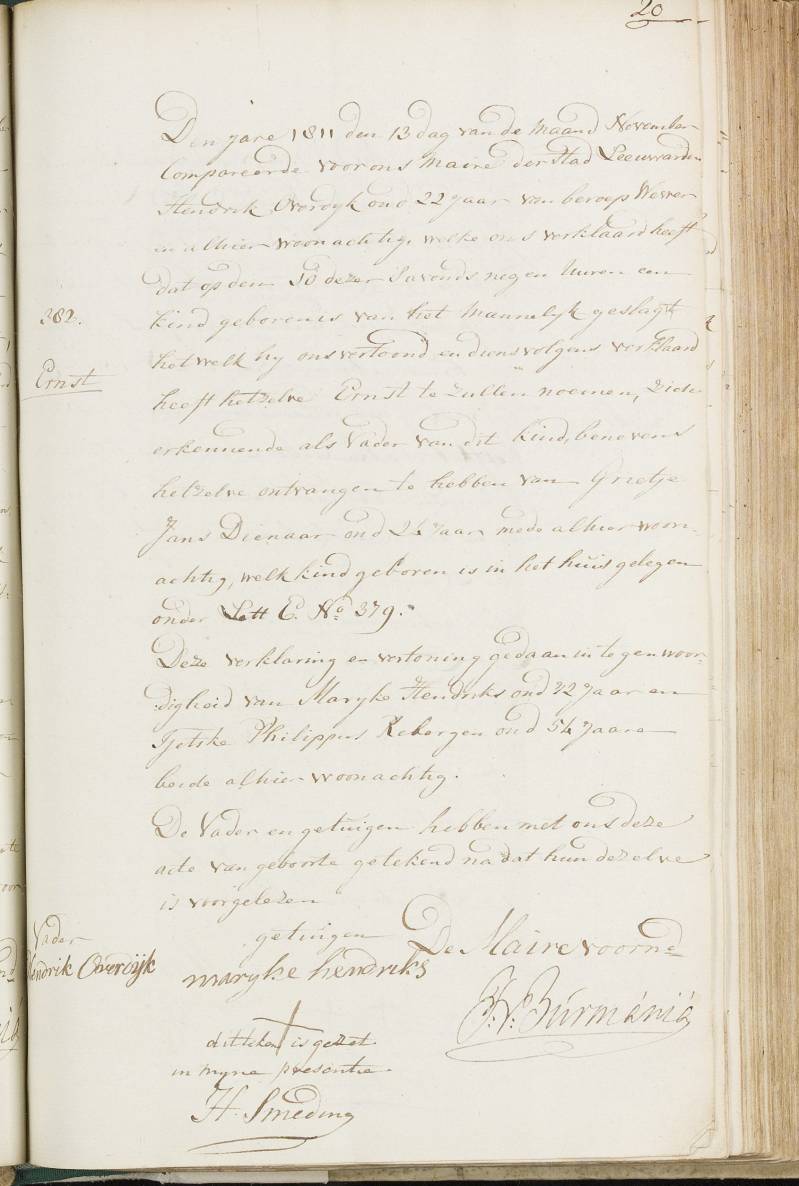 20
Den jare 1811 den 13 dag van de maand November
Compareerde voor ons maire der stad Leeuwarden
Hendrik Overdyk oud 22 jaar van beroep Wever
en alhier woonachtig, welke ons verklaard heeft
dat op den 10 dezer s'avonds negen Uuren een
382.
kind geboren is van het Mannelyk geslagt
het welk hy ons vertoond en diensvolgens verklaard
Ernst
heeft hetzelve Ernst te zullen noemen, zich
erkennende als Vader van dit kind, benevens
hetzelve ontvangen te hebben van Grietje
Jans Dienaar oud 24 Jaar mede alhier woon-
achtig, welk kind geboren is in het huis gelegen
onder Lett E. No. 379.
Deze verklaring en vertoning gedaan in tegenwoor-
digheid van Maryke Hendriks oud 22 jaar en
Tjetske Philippus Rebergen oud 54 Jaare
beide alhier woonachtig.
De Vader en getuigen hebben met ons deze
acte van geboorte getekend na dat hun dezelve
is voorgelezen
Vader
getuigen
De Maire voornd
Hendrik Overdijk
maryke hendriks
Burmánia
dit teken is gezet
in myne presentie.
H. Smeding